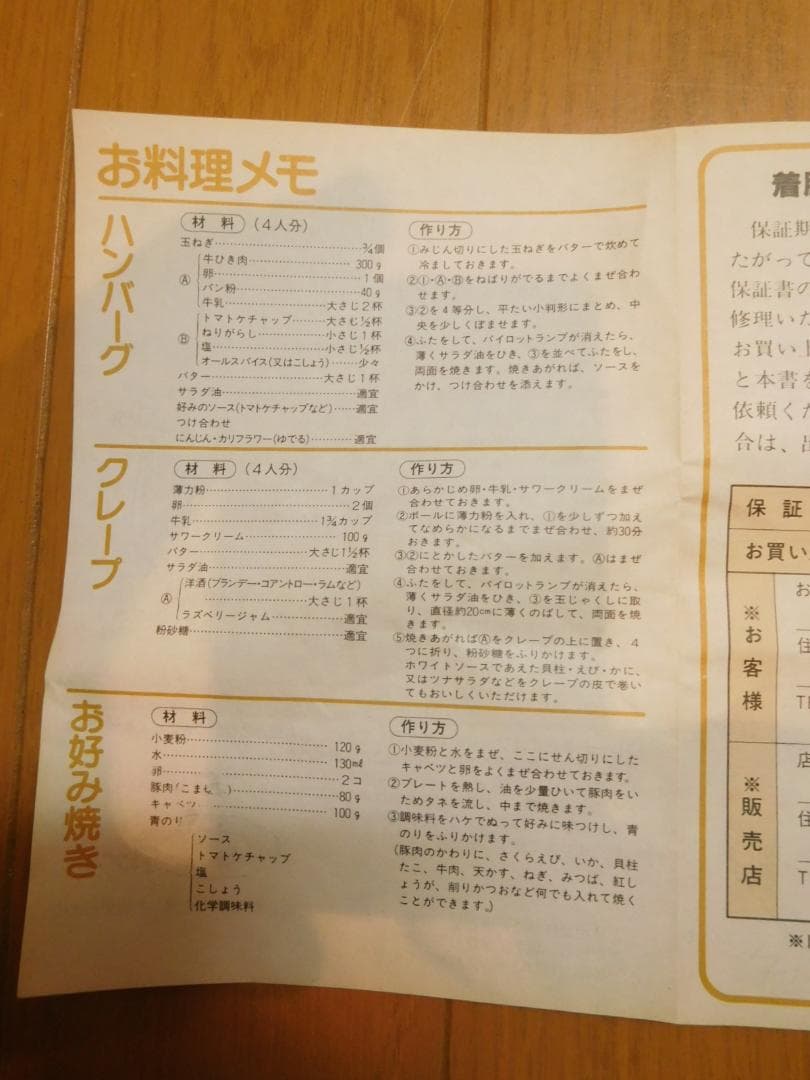 お料理メモ
ハンバーグ
材料 (4人分)
玉ねぎ……………¾個
Ⓐ
牛ひき肉……………300g
卵……………1個
パン粉……………40g
牛乳……………大さじ2杯
Ⓑ
トマトケチャップ……大さじ½杯
ねりがらし……………小さじ1杯
塩……………小さじ½杯
オールスパイス(又はこしょう)……少々
バター……………大さじ1杯
サラダ油……………適宜
好みのソース(トマトケチャップなど)……適宜
つけ合わせ
にんじん・カリフラワー(ゆでる)…………適宜
作り方
①みじん切りにした玉ねぎをバターで炊めて
冷ましておきます。
②①・Ⓐ・Ⓑをねばりがでるまでよくまぜ合わ
せます。
③②を4等分し、平たい小判形にまとめ、中
央を少しくぼませます。
④ふたをして、パイロットランプが消えたら、
薄くサラダ油をひき、③を並べてふたをし、
両面を焼きます。焼きあがれば、ソースを
かけ、つけ合わせを添えます。
クレープ
材料 (4人分)
薄力粉……………1カップ
卵……………2個
牛乳……………1¾カップ
サワークリーム……………100g
バター……………大さじ1½杯
サラダ油……………適宜
Ⓐ
洋酒(ブランデー・コアントロー・ラムなど)
……………大さじ1杯
ラズベリージャム……………適宜
粉砂糖……………適宜
作り方
①あらかじめ卵・牛乳・サワークリームをまぜ
合わせておきます。
②ボールに薄力粉を入れ、①を少しずつ加え
てなめらかになるまでまぜ合わせ、約30分
おきます。
③②にとかしたバターを加えます。Ⓐはまぜ
合わせておきます。
④ふたをして、パイロットランプが消えたら、
薄くサラダ油をひき、③を玉じゃくしに取
り、直径約20cmに薄くのばして、両面を焼
きます。
⑤焼きあがればⒶをクレープの上に置き、4
つに折り、粉砂糖をふりかけます。
ホワイトソースであえた貝柱・えび・かに、
又はツナサラダなどをクレープの皮で巻い
てもおいしくいただけます。
お好み焼き
材料
小麦粉……………120g
水……………130ml
卵……………2コ
豚肉(こま )……………80g
キャベツ……………100g
青のり
ソース
トマトケチャップ
塩
こしょう
化学調味料
作り方
①小麦粉と水をまぜ、ここにせん切りにした
キャベツと卵をよくまぜ合わせておきます。
②プレートを熱し、油を少量ひいて豚肉をい
ためタネを流し、中まで焼きます。
③調味料をハケでぬって好みに味つけし、青
のりをふりかけます。
(豚肉のかわりに、さくらえび、いか、貝柱
たこ、牛肉、天かす、ねぎ、みつば、紅し
ょうが、削りかつおなど何でも入れて焼く
ことができます。)
保証期
たがって
保証書の
修理いた
お買い上
と本書を
依頼くだ
合は、出
保証
お買い
※お客様
お
住
TE
※販売店
店
住
T